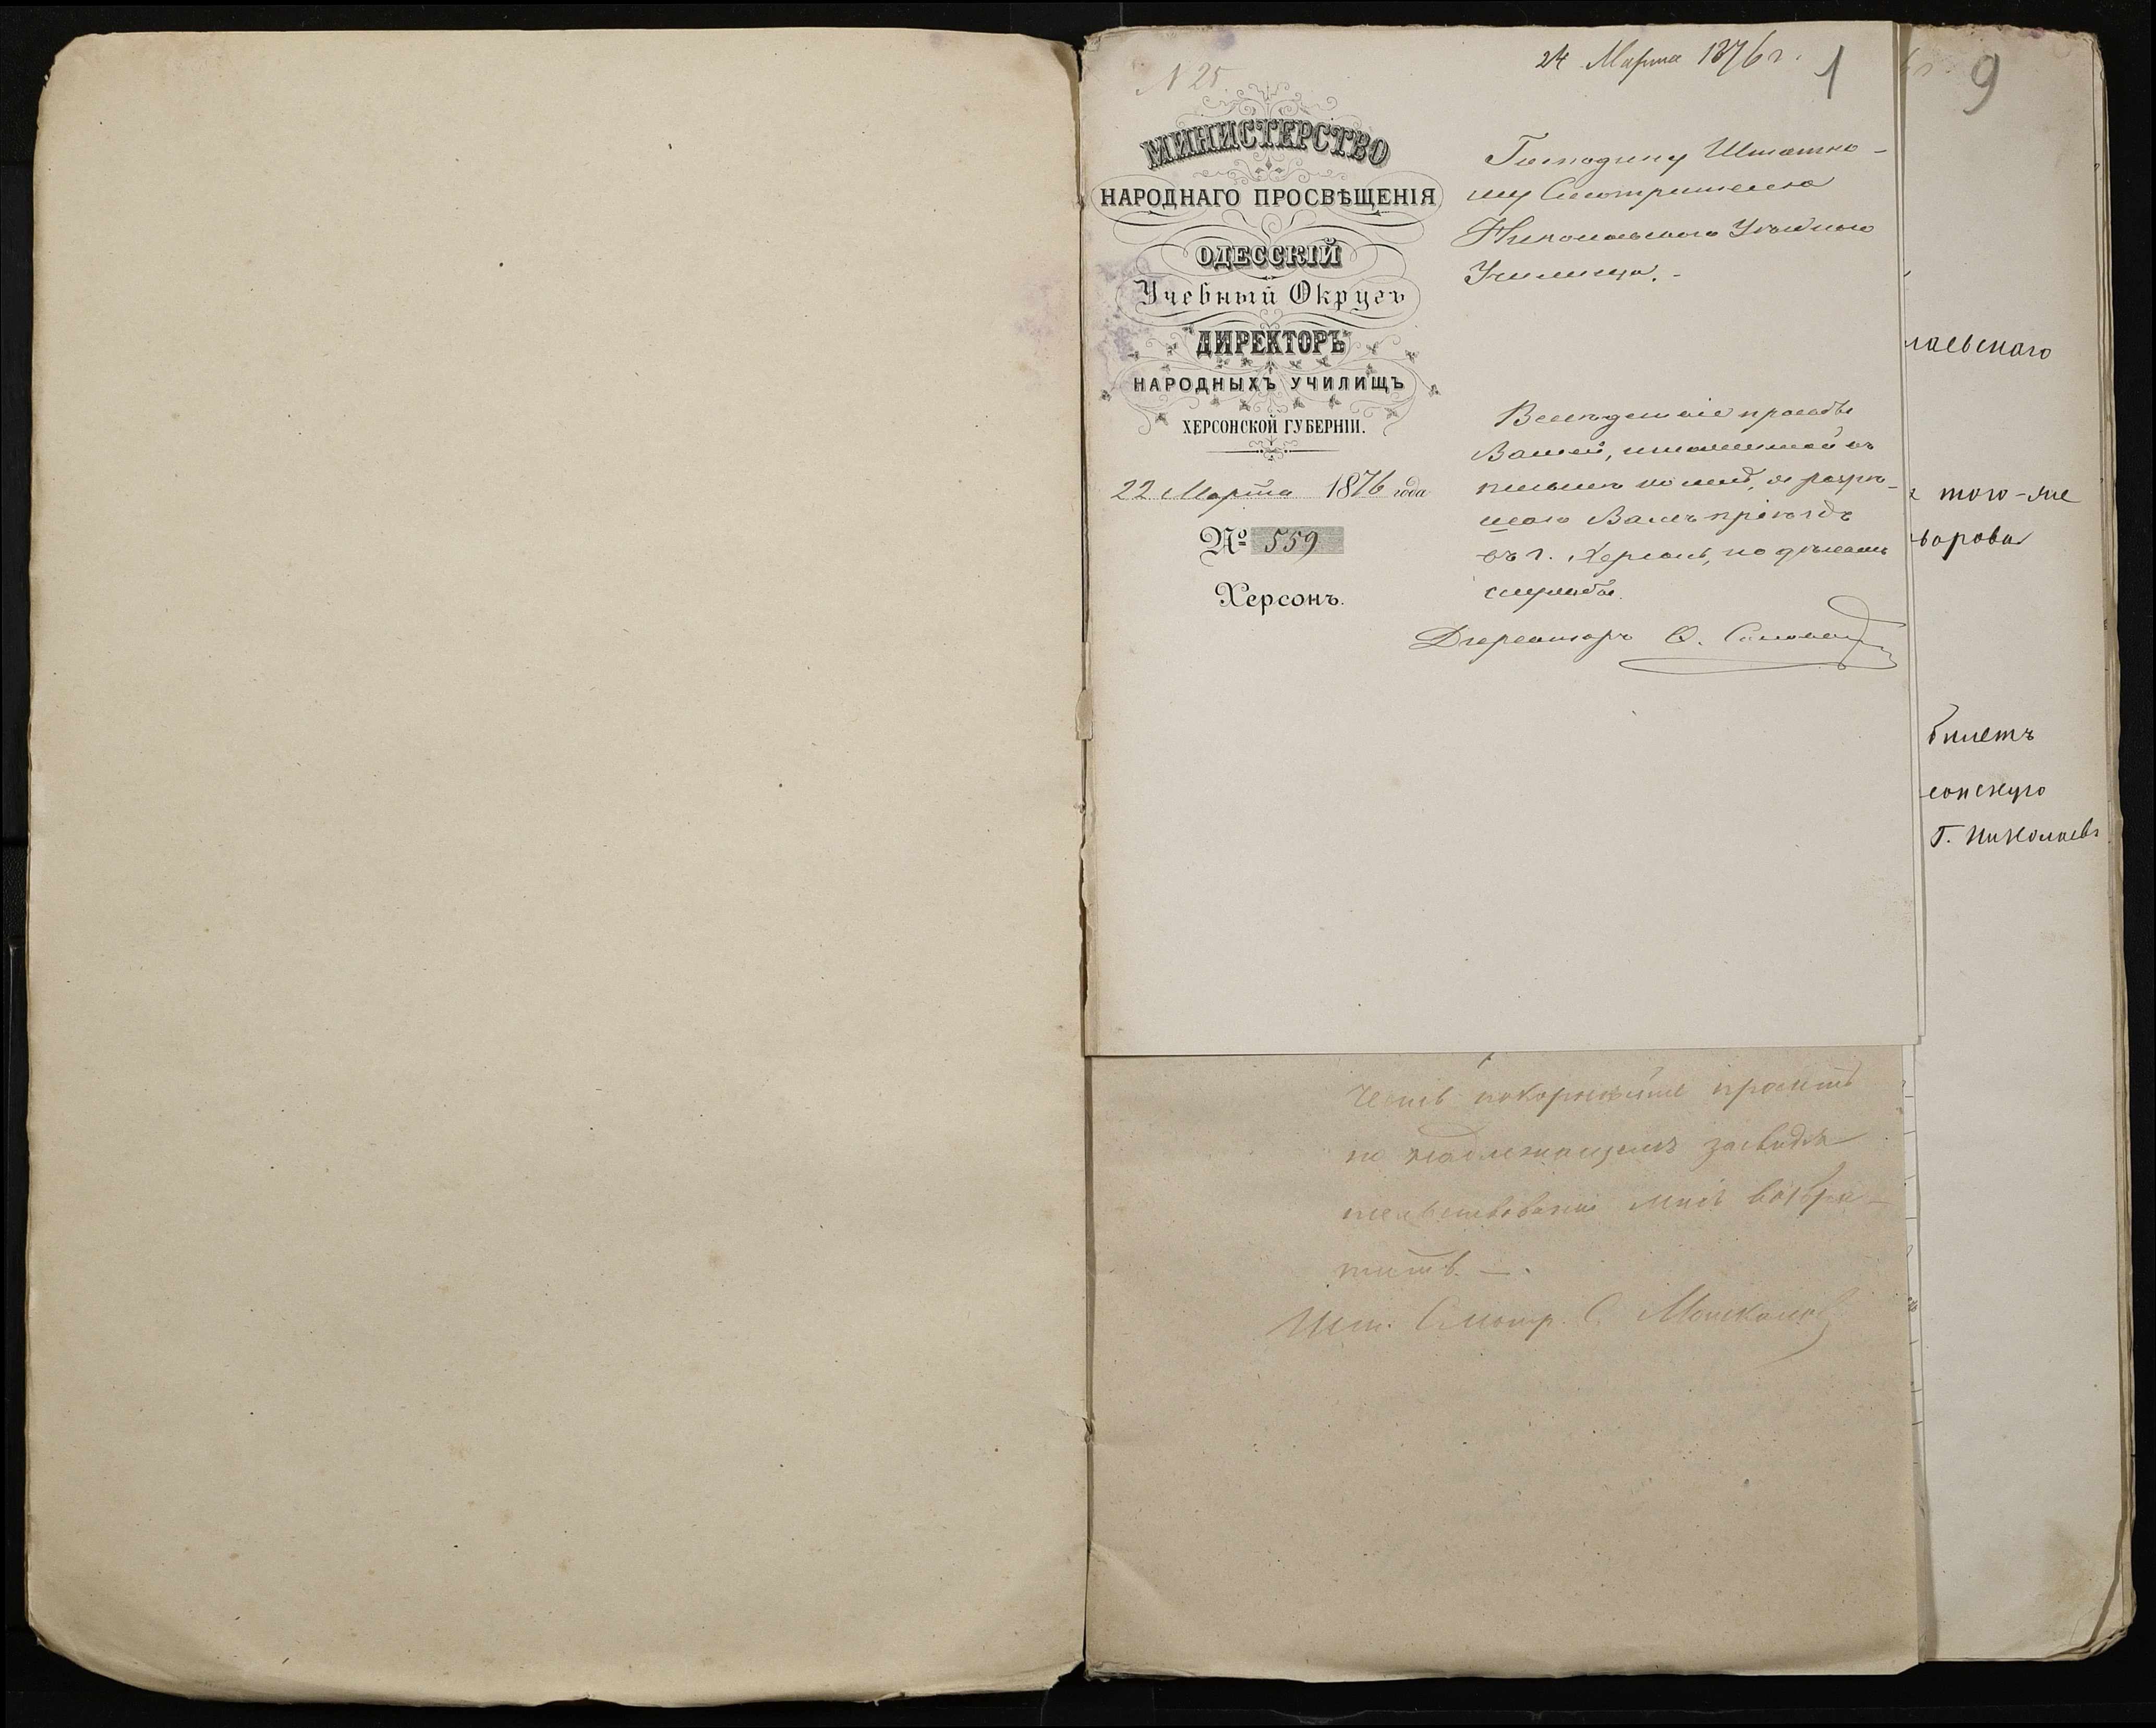 N 25.
24 Марта 1876 г.
1
МИНИСТЕРСТВО
НАРОДНАГО ПРОСВѢЩЕНІЯ
ОДЕССКІЙ
Учебный Округъ
ДИРЕКТОРЪ
НАРОДНЫХЪ УЧИЛИЩЪ
ХЕРСОНСКОЙ ГУБЕРНІИ.
22 Марта 1876 года
№ 559
Херсонъ.
Господину Штатно-
му Смотрителю
Николаевскаго Уѣзднаго
Училища.-
Вслѣдствіе просьбы
Вашей, изложенной въ
письмѣ ко мнѣ, я разрѣ-
шаю Вамъ пріѣздъ
въ г. Херсонъ, по дѣламъ
службы.
Директоръ
честь покорнѣйше просить
по надлежащемъ засвидѣ
тельствованіи мнѣ возвра-
тить. -.
Шт. Смотр. С.
9
лаевскаго
того-же
билетъ
сонскую
Г. Николаевъ